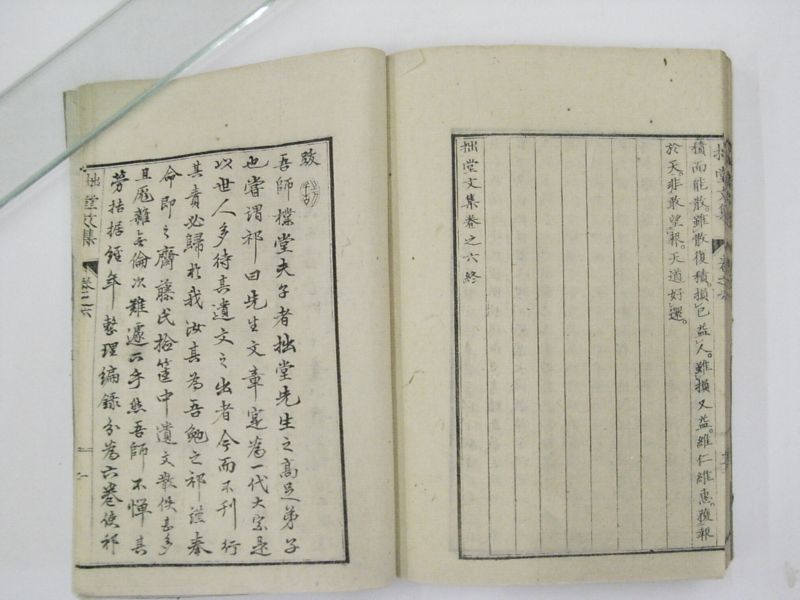 積而能散。雖散復積。損己益人。雖損又益。維仁維惠。獲報
於天。非敢望報。天道好還。
拙堂文集卷之六終
跋
吾師櫟堂夫子者拙堂先生之高足弟子
也嘗謂祁曰先生文章寔為一代大宗是
以世人多待其遺文之出者今而不刊行
其責必歸於我汝其為吾勉之祁謹奉
命即之齋藤氏拾篋中遺文散佚甚多
且厖雜無倫次難遽下手然吾師不憚其
勞拮据經年整理編錄分為六卷使祁
拙堂文集
卷之六